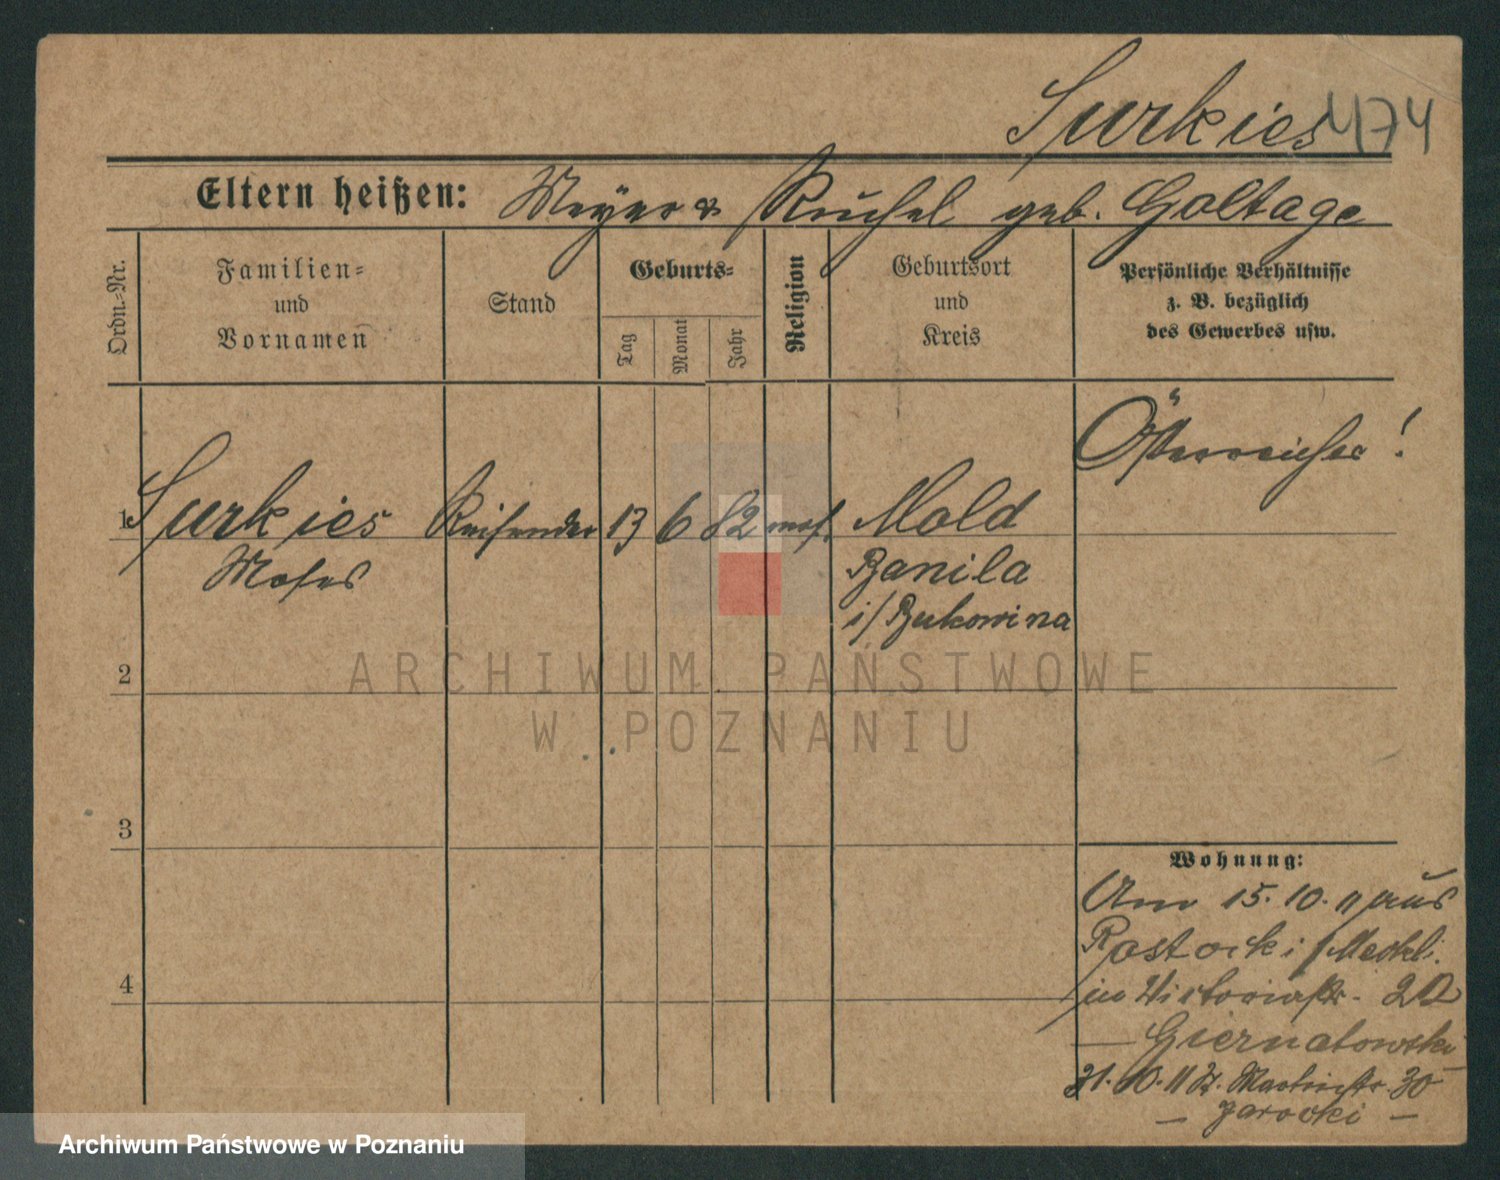 Surkies 474
Eltern heißen: Meyer & Ruchel geb. Goltage
Ordn.-Nr.
Familien-
und
Vornamen
Stand
Geburts-
Tag
Monat
Jahr
Religion
Geburtsort
und
Kreis
Persönliche Verhältnisse
z. B. bezüglich
des Gewerbes usw.
Österreicher!
1 Surkies Reisender 13 6 82 mos. Mold
Moses Banila
i/Bukowina
2
3
4
Wohnung:
Am 15.10.11 aus
Rostock i/Meckl.
in Victoriastr. 20
— Giernatowski
31.10.11 Z. Martinstr. 30
— Jarocki —
ARCHIWUM PAŃSTWOWE
W POZNANIU
Archiwum Państwowe w Poznaniu